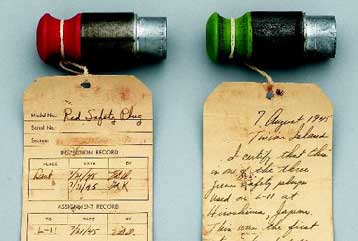 Model No. Red Safety Plug
Serial No.
Source
INSPECTION RECORD
PLACE DATE BY
ASSIGNMENT RECORD
TO DATE BY
L-11
7 August, 1945
Tinian Island
I certify that this
is one of the three
green safety plugs
used on L-11 at
Hiroshima, Japan.
This was the first